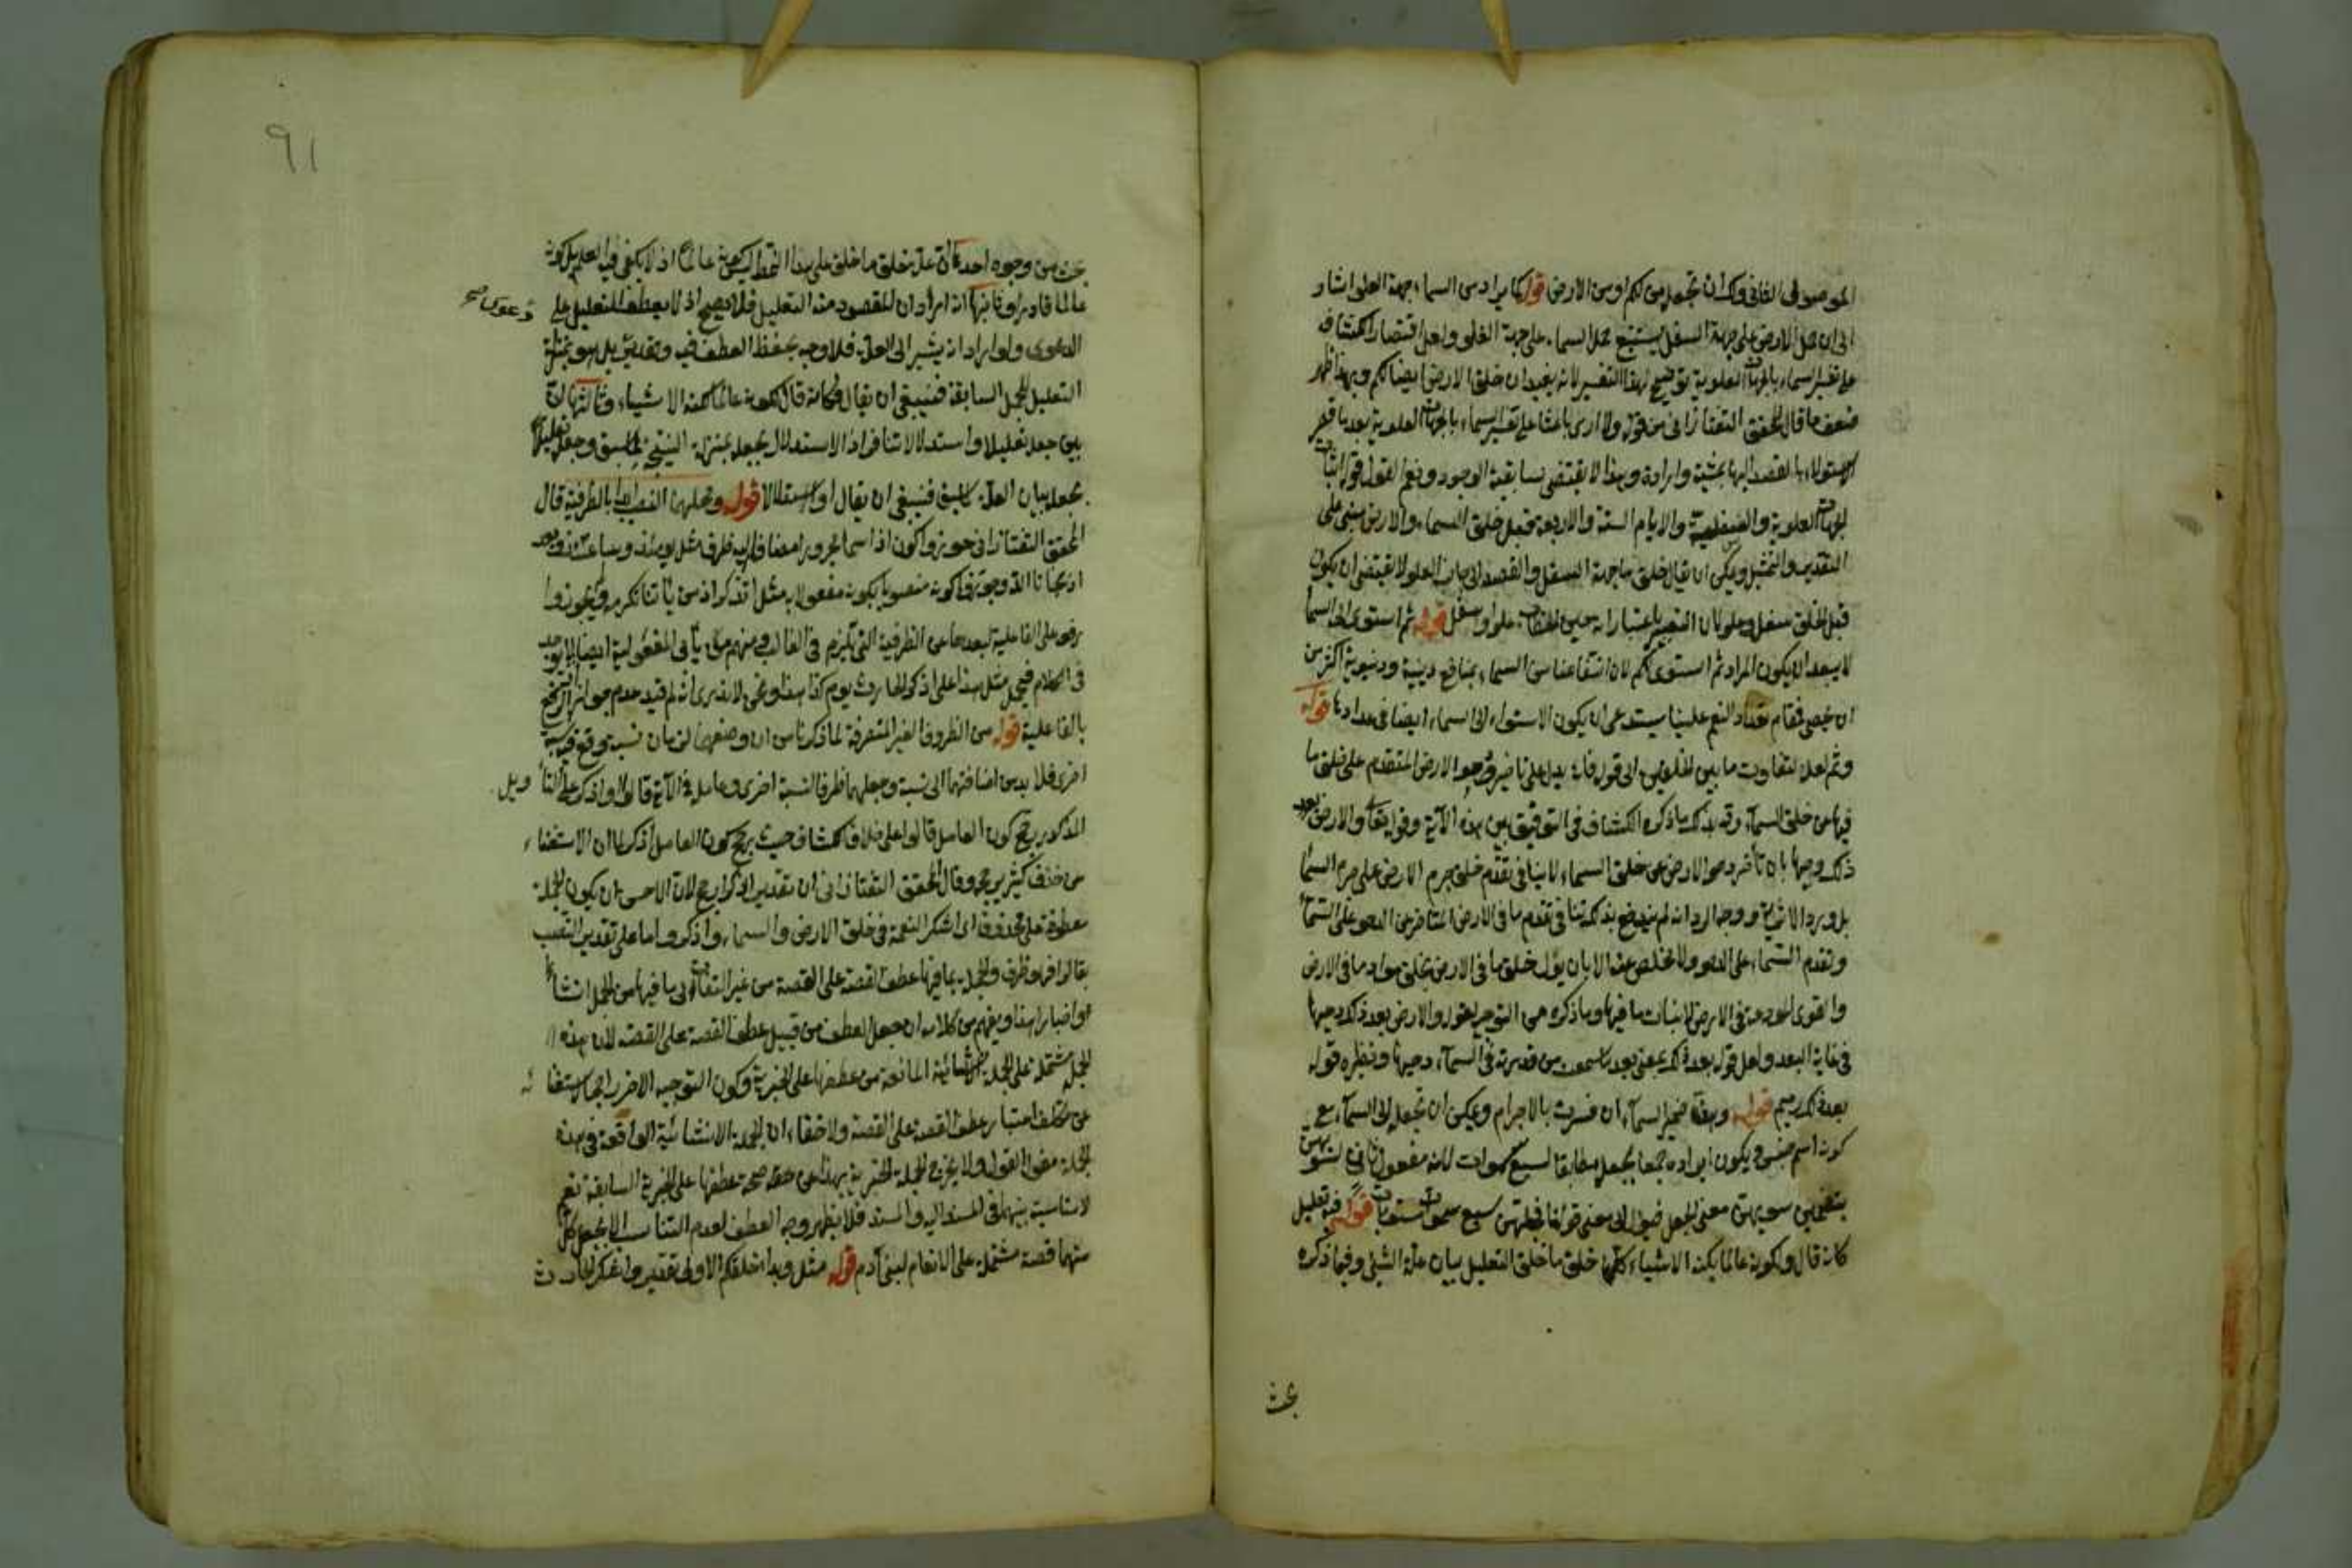 الموصوف الثاني ولك ان تجعل من لكم او من الارض قوله كما يراد من السماء جهة العلو اشار
الى ان حمل الارض على جهة السفل يستتبع حمل السماء على جهة العلو ولعل اقتصار الكشاف
على تفسير السماء بالجهات العلوية توضيح لهذا التفسير لانه يفيد ان خلق الارض ايضا لكم وبهذا ظهر
ضعف ما قال المحقق التفتازاني من قوله ولا ارى باعثا على تفسير السماء بالجهات العلوية بعد ما فسر
الاستواء بالقصد اليها بمشية وارادة وهذا لا يقتضي سابقية الوجود ونعم القول قوله اثبات
الجهات العلوية والسفلية والايام الستة والاربعة قبل خلق السماء والارض مبني على
التقدير والتمثيل ويمكن ان يقال خلق ما جهة السفل والقصد الى جانب العلو لا يقتضي ان يكون
قبل الخلق سفل وعلو لان التعبير باعتبار انه حين الخطاب علو او سفل قوله ثم استوى الى السماء
لا يبعد ان يكون المراد ثم استوى لكم لان انتفاعنا من السماء بمنافع دينية ودنيوية اكثر من
ان يحصى فمقام تعداد النعم علينا يستدعي ان يكون الاستواء الى السماء ايضا في عدادها قوله
وثم لعله لتفاوت ما بين الخلقين الى قوله فانه يدل على تاخير دحو الارض المتقدم على خلق ما
فيها عن خلق السماء وقد بذلك ما ذكره الكشاف في التوفيق بين هذه الآية وقوله تعالى والارض بعد
ذلك دحيها بان تأخر دحو الارض عن خلق السماء لا ينافي تقدم خلق جرم الارض على جرم السماء
ووجه الرد انه لم يندفع بذلك تنافي تقدم ما في الارض المتأخر عن الدحو على السماء
وتقدم السماء على الدحو ولا مخلص عنه الا بان يؤل خلق ما في الارض بخلق مواد ما في الارض
والقوى المودعة في الارض لانبات ما فيها وما ذكره من التوجيه لقوله والارض بعد ذلك دحيها
في غاية البعد ولعل قوله بعد ذلك بمعنى بعد ما سمعت من قدرته في السماء دحيها ونظيره قوله
بعد ذلك زنيم قوله وهن ضمير السماء ان فسرت بالاجرام ويمكن ان تجعل الى السماء مع
كونه اسم جنس ويكون ايراده جمعا لجعله مطابقا لسبع سموات لانه مفعول ثاني لسويهن
بتضمين سويهن معنى الجعل فيؤل الى معنى قولنا فجعلهن سبع سموات مستويات قوله فيه تعليل
كانه قال ولكونه عالما بكنه الاشياء كلها خلق ما خلق التعليل بيان علة الشيئ وفيما ذكره
بحث
٩١
بحث من وجوه احدها ان علة خلق ما خلق على هذا النمط ليس كونه عالما اذ لا يكفي فيه العلم بل كونه
عالما قادرا وثانيها انه اراد ان المقصود منه التعليل فلا يصح اذ لا يعطف التعليل على
دعوى صح
الدعوى ولو اراد انه يشير الى العلة فلا وجه بحفظ العطف فيه وتقديره بل هو بمنزلة
التعليل للجمل السابقة فينبغي ان يقال فكانه قال لكونه عالما بكنه الاشياء وثالثها ان
بين جعله تعليلا واستدلالا تنافر اذ الاستدلال يجعله بمنزلة النتيجة لما سبق وجعله تعليلا
يجعله بيان العلة لما سبق فينبغي ان يقال او استدلالا قوله ومحلهما النصب ابدا بالظرفية قال
المحقق التفتازاني جوزوا كون اذا اسما مجرورا مضافا اليه ظرف مثل يومئذ وساعتئذ وبعد
اذ نجانا الله وجوزوا كونه منصوبا بكونه مفعولا به مثل اتذكر اذ من يأتنا نكرمه ولم يجوزوا
رفعه على الفاعلية لبعدها من الظرفية التي تلزم في الغالب ومنهم من يأبى المفعولية ايضا لما يوجد
في الكلام فيحمل مثل هذا على اذكر الحادث يوم كذا هذا ونحن لا ندري انه لم قيد عدم جواز الرفع
بالفاعلية قوله من الظروف الغير المتصرفة لما ذكرنا من ان وضعهما لزمان نسبة وقع فيه نسبة
اخرى فلا بد من اضافتهما الى نسبة وجعلهما ظرفا لنسبة اخرى وعامله في الآية قالوا او اذكر على التأويل
المذكور يرجح كون العامل قالوا على خلاف الكشاف حيث يرجح كون العامل اذكر لما ان الاستغناء
من حذف كثير يرجح وقال المحقق التفتازاني ان تقدير اذكر ارجح لان الاحسن ان يكون الجملة
معطوفة على محذوف اي اشكر النعمة في خلق الارض والسماء واذكر واما على تقدير النصب
بقالوا فهو ظرف والجملة بما فيها عطف القصة على القصة من غير التفات الى ما فيها من الجمل انشاء
او اخبارا هذا ويفهم من كلامه ان جعل العطف من قبيل عطف القصة على القصة لان هذه
الجمل مشتملة على الجملة الانشائية المانعة من عطفها على الخبرية وكون التوجيه الاخر راجحا لاستغنائه
عن تكلف اعتبار عطف القصة على القصة ولا خفاء ان الجملة الانشائية الواقعة في هذه
الجملة مقول القول ولا يخرج الجملة الخبرية بهذا عن صحة عطفها على الخبرية السابقة نعم
لا مناسبة بينهما في المسند اليه والمسند فلا يظهر وجه العطف لعدم التناسب الا بجعل كل
منهما قصة مشتملة على الانعام لبني آدم قوله مثل وبدا خلقكم الاولى تقدير واذكر الحادث